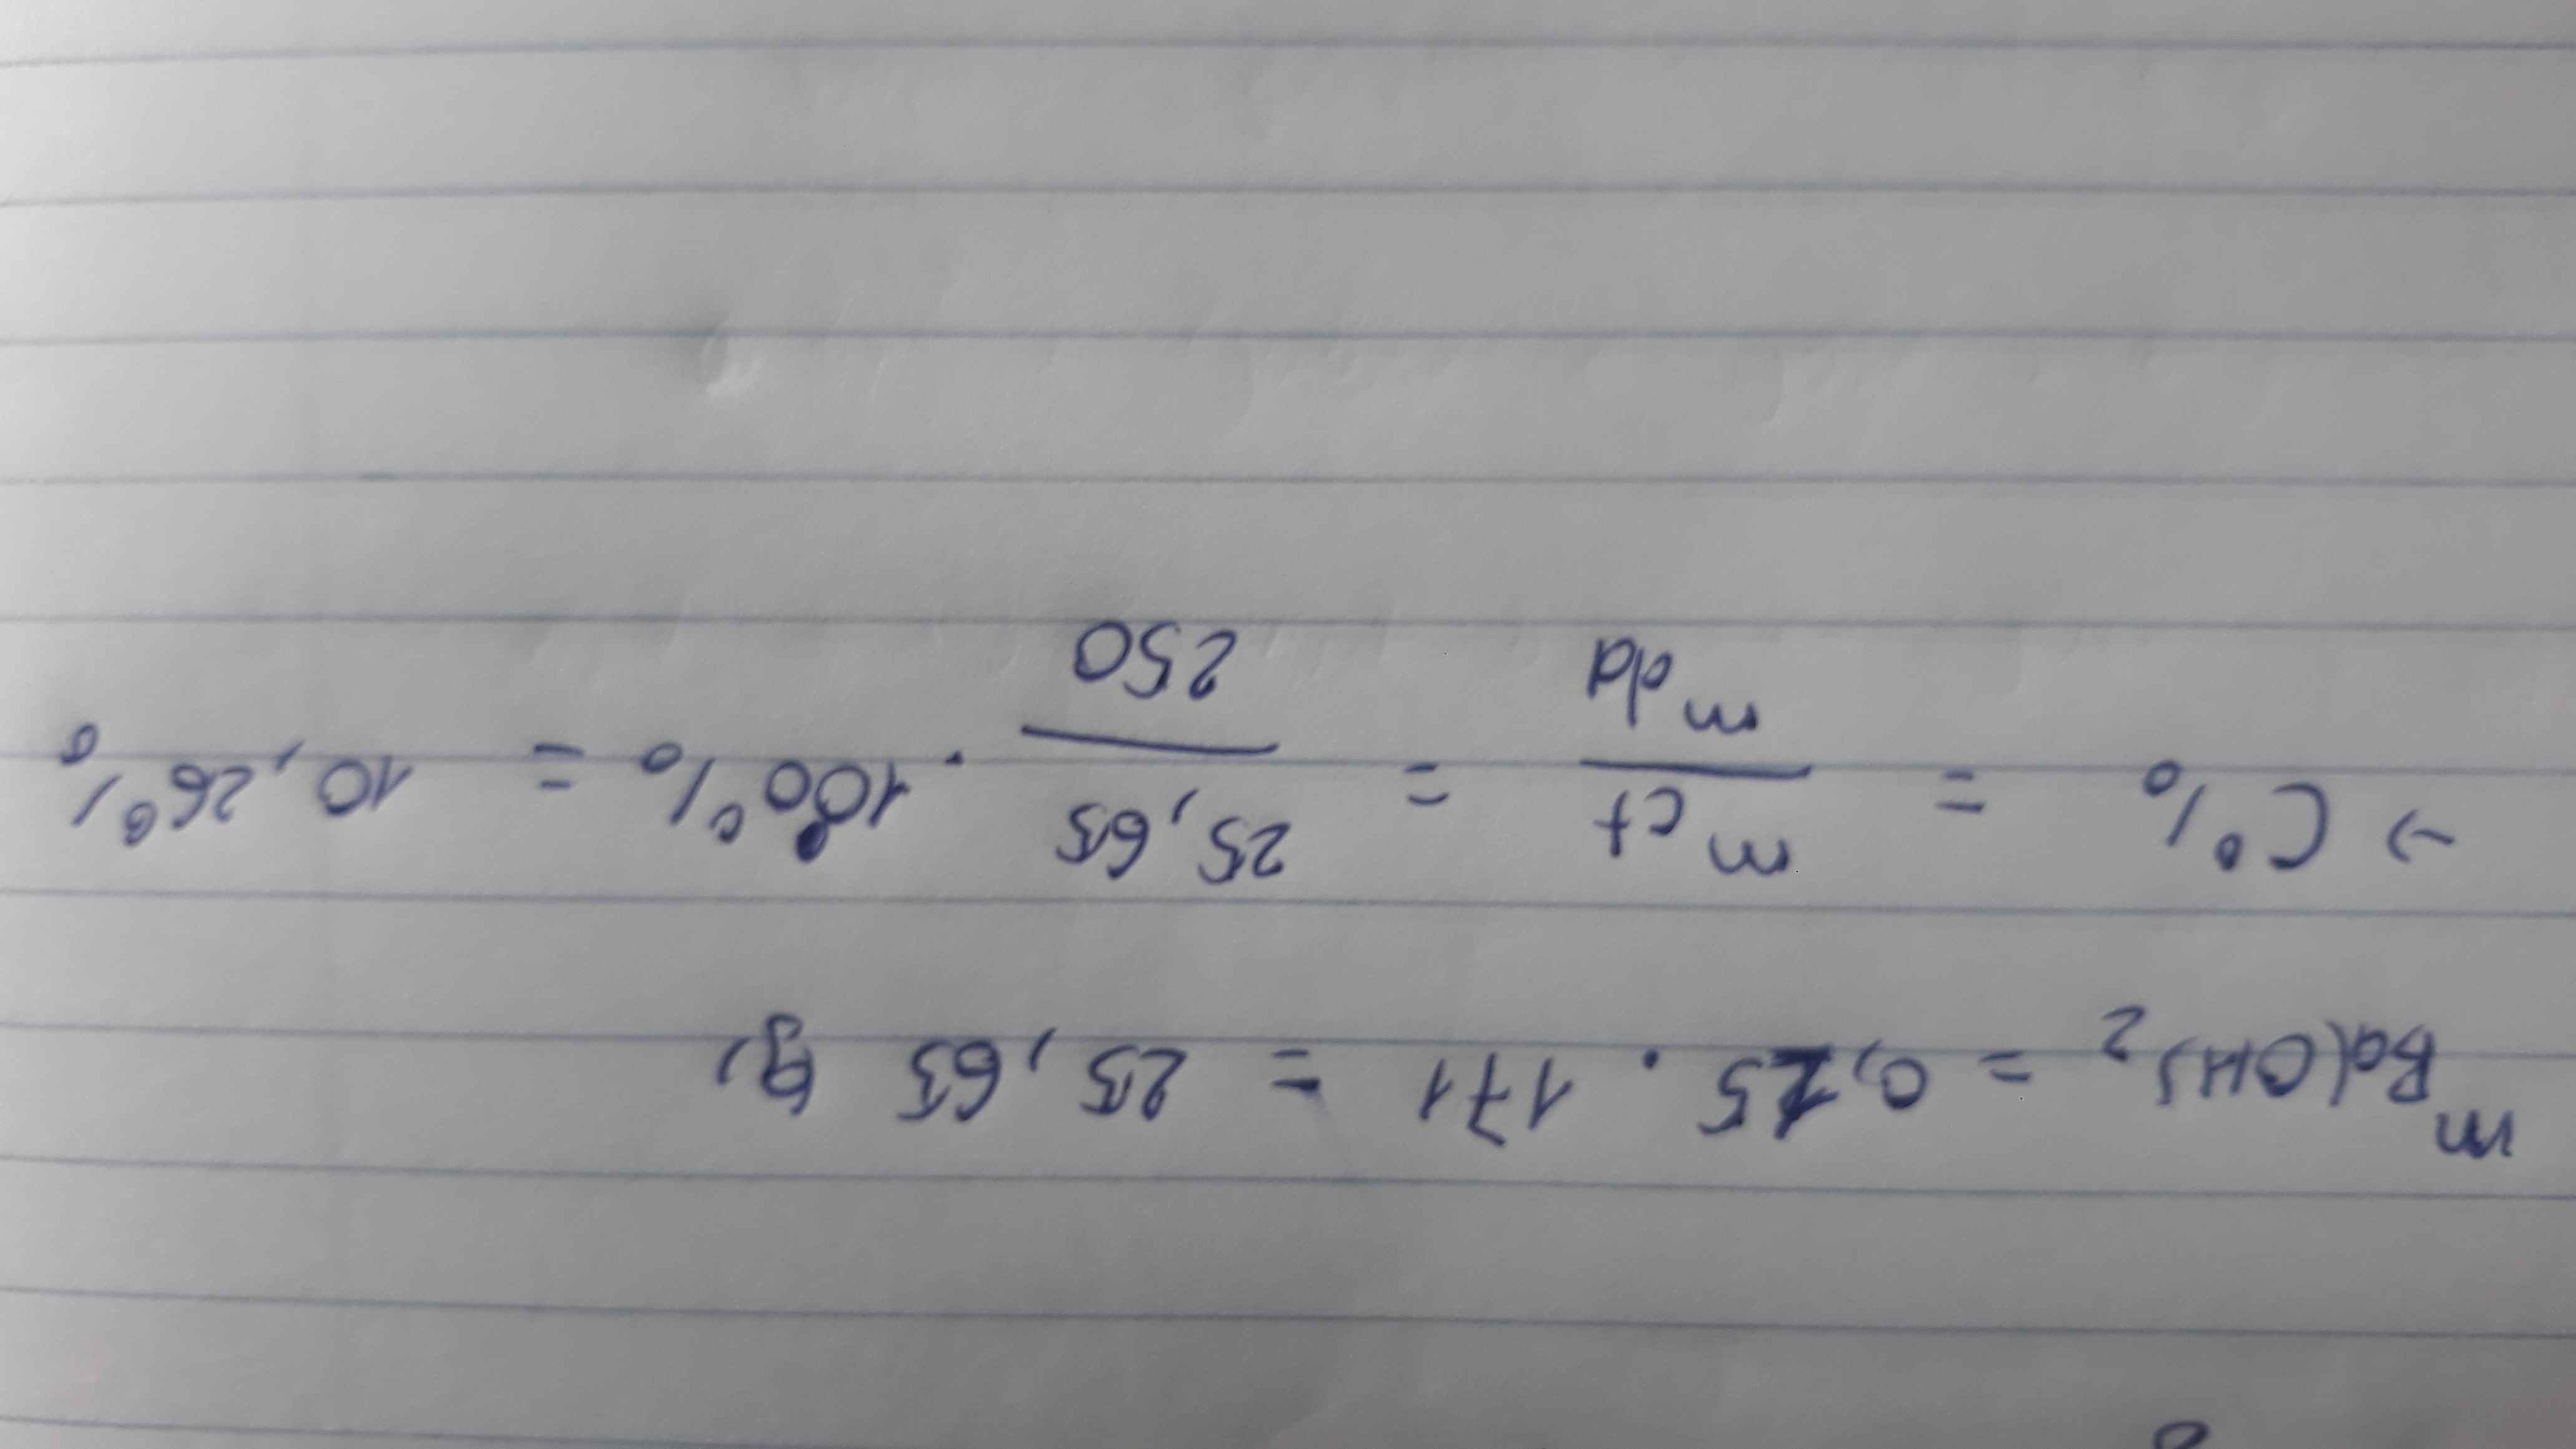 m Ba(OH)2 = 0,15 . 171 = 25,65 g,
→ C% = m ct / m dd = 25,65 / 250 . 100% = 10,26%